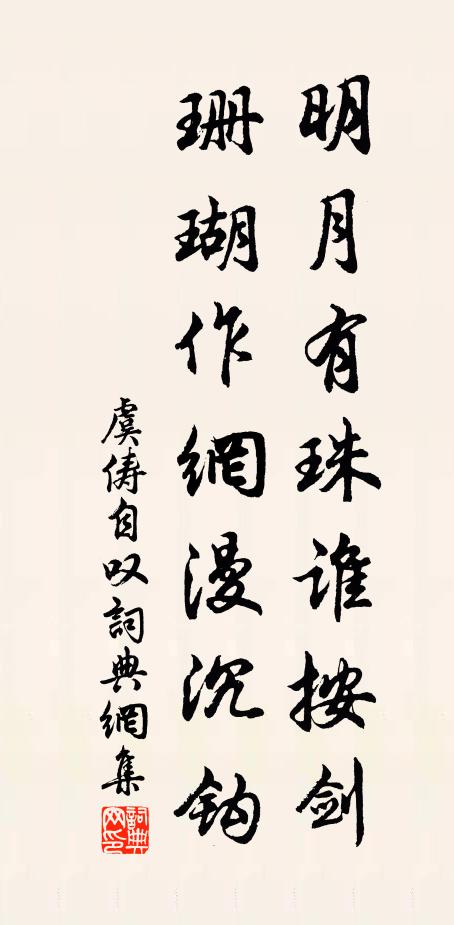 明月有珠谁按剑
珊瑚作網漫沉鈎
虞俦自叹詞典網集
詞典
网印